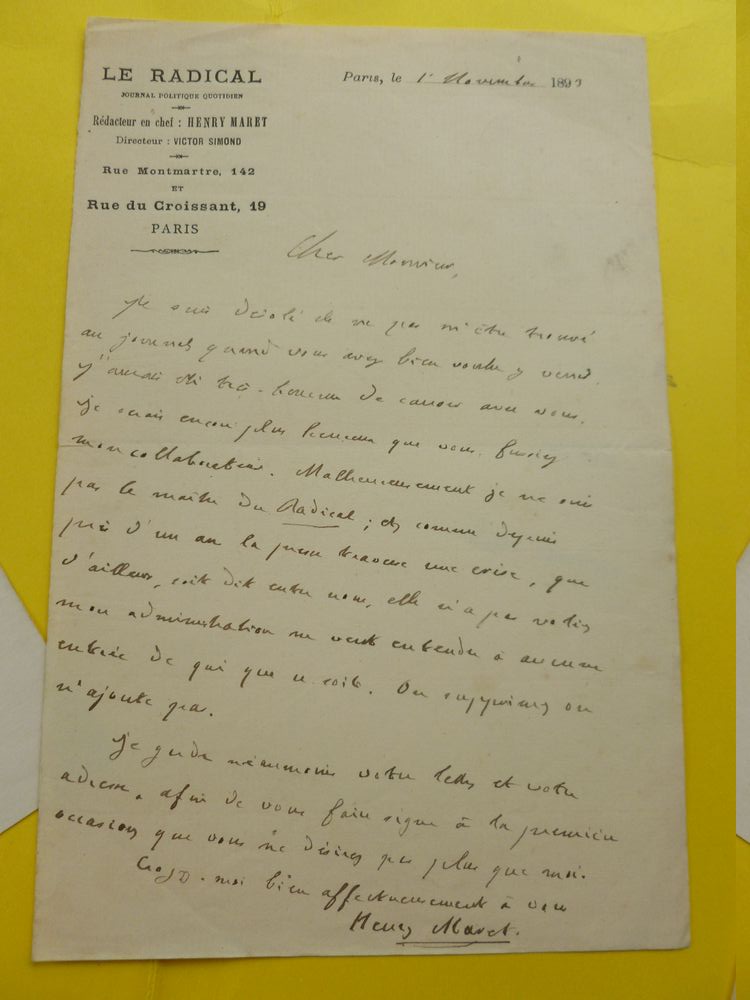 LE RADICAL
JOURNAL POLITIQUE QUOTIDIEN
Rédacteur en chef : HENRY MARET
Directeur : VICTOR SIMOND
Rue Montmartre, 142
ET
Rue du Croissant, 19
PARIS
Paris, le 1er Novembre 189
Cher Monsieur,
Je suis désolé de ne pas m'être trouvé
au journal quand vous avez bien voulu y venir.
J'aurais été très-heureux de causer avec vous.
Je serais encore plus heureux que vous fussiez
mon collaborateur. Malheureusement je ne suis
pas le maître du Radical ; et comme depuis
près d'un an la presse traverse une crise, que
d'ailleurs, soit dit entre nous, elle n'a pas volée,
mon administration ne veut entendre à aucune
entrée de qui que ce soit. On supprime, on
n'ajoute pas.
Je garde néanmoins votre lettre et votre
adresse, afin de vous faire signe à la première
occasion, que vous ne désirez pas plus que moi.
Croyez-moi bien affectueusement à vous
Henry Maret.